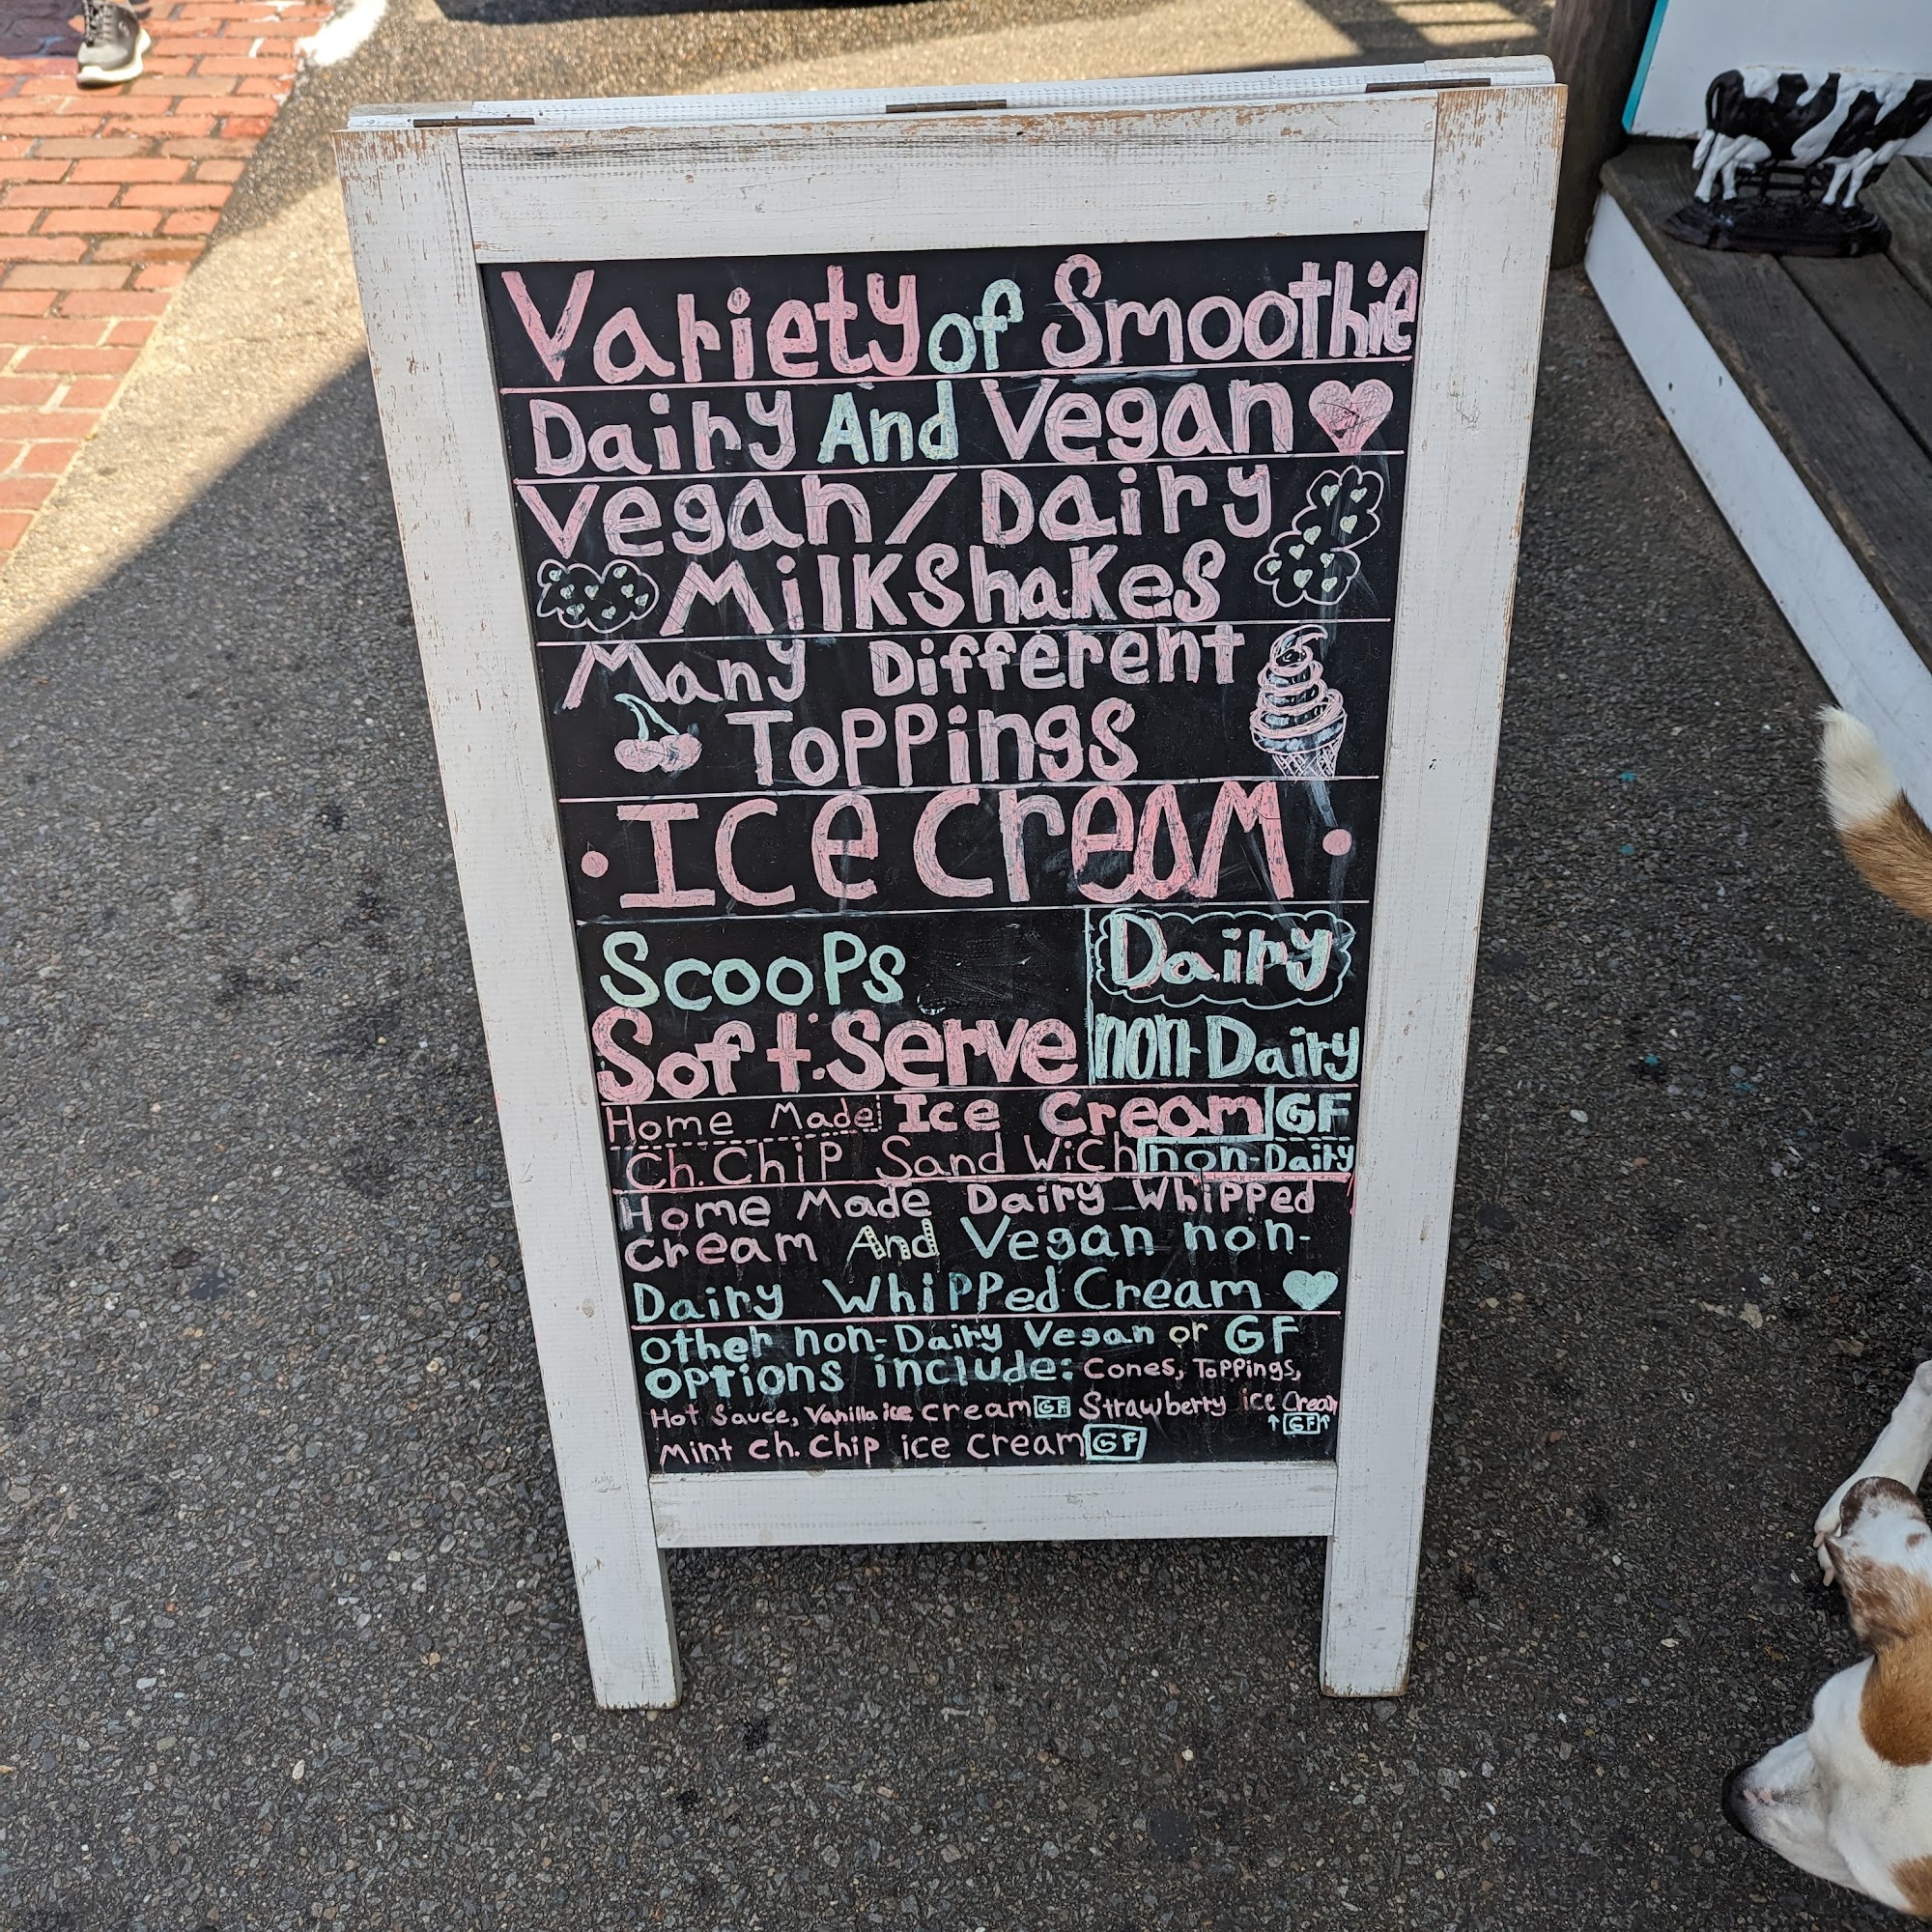 Variety of Smoothie
Dairy And Vegan
Vegan/Dairy
Milkshakes
Many Different
Toppings
Ice cream
Scoops
Dairy
Soft Serve
non-Dairy
Home Made Ice Cream GF
Ch. Chip Sand Wich non-Dairy
Home Made Dairy Whipped
cream And Vegan non-
Dairy Whipped Cream
other non-Dairy Vegan or GF
options include: Cones, Toppings,
Hot Sauce, Vanilla ice cream GF Strawberry ice Cream
GF
Mint ch. chip ice cream GF